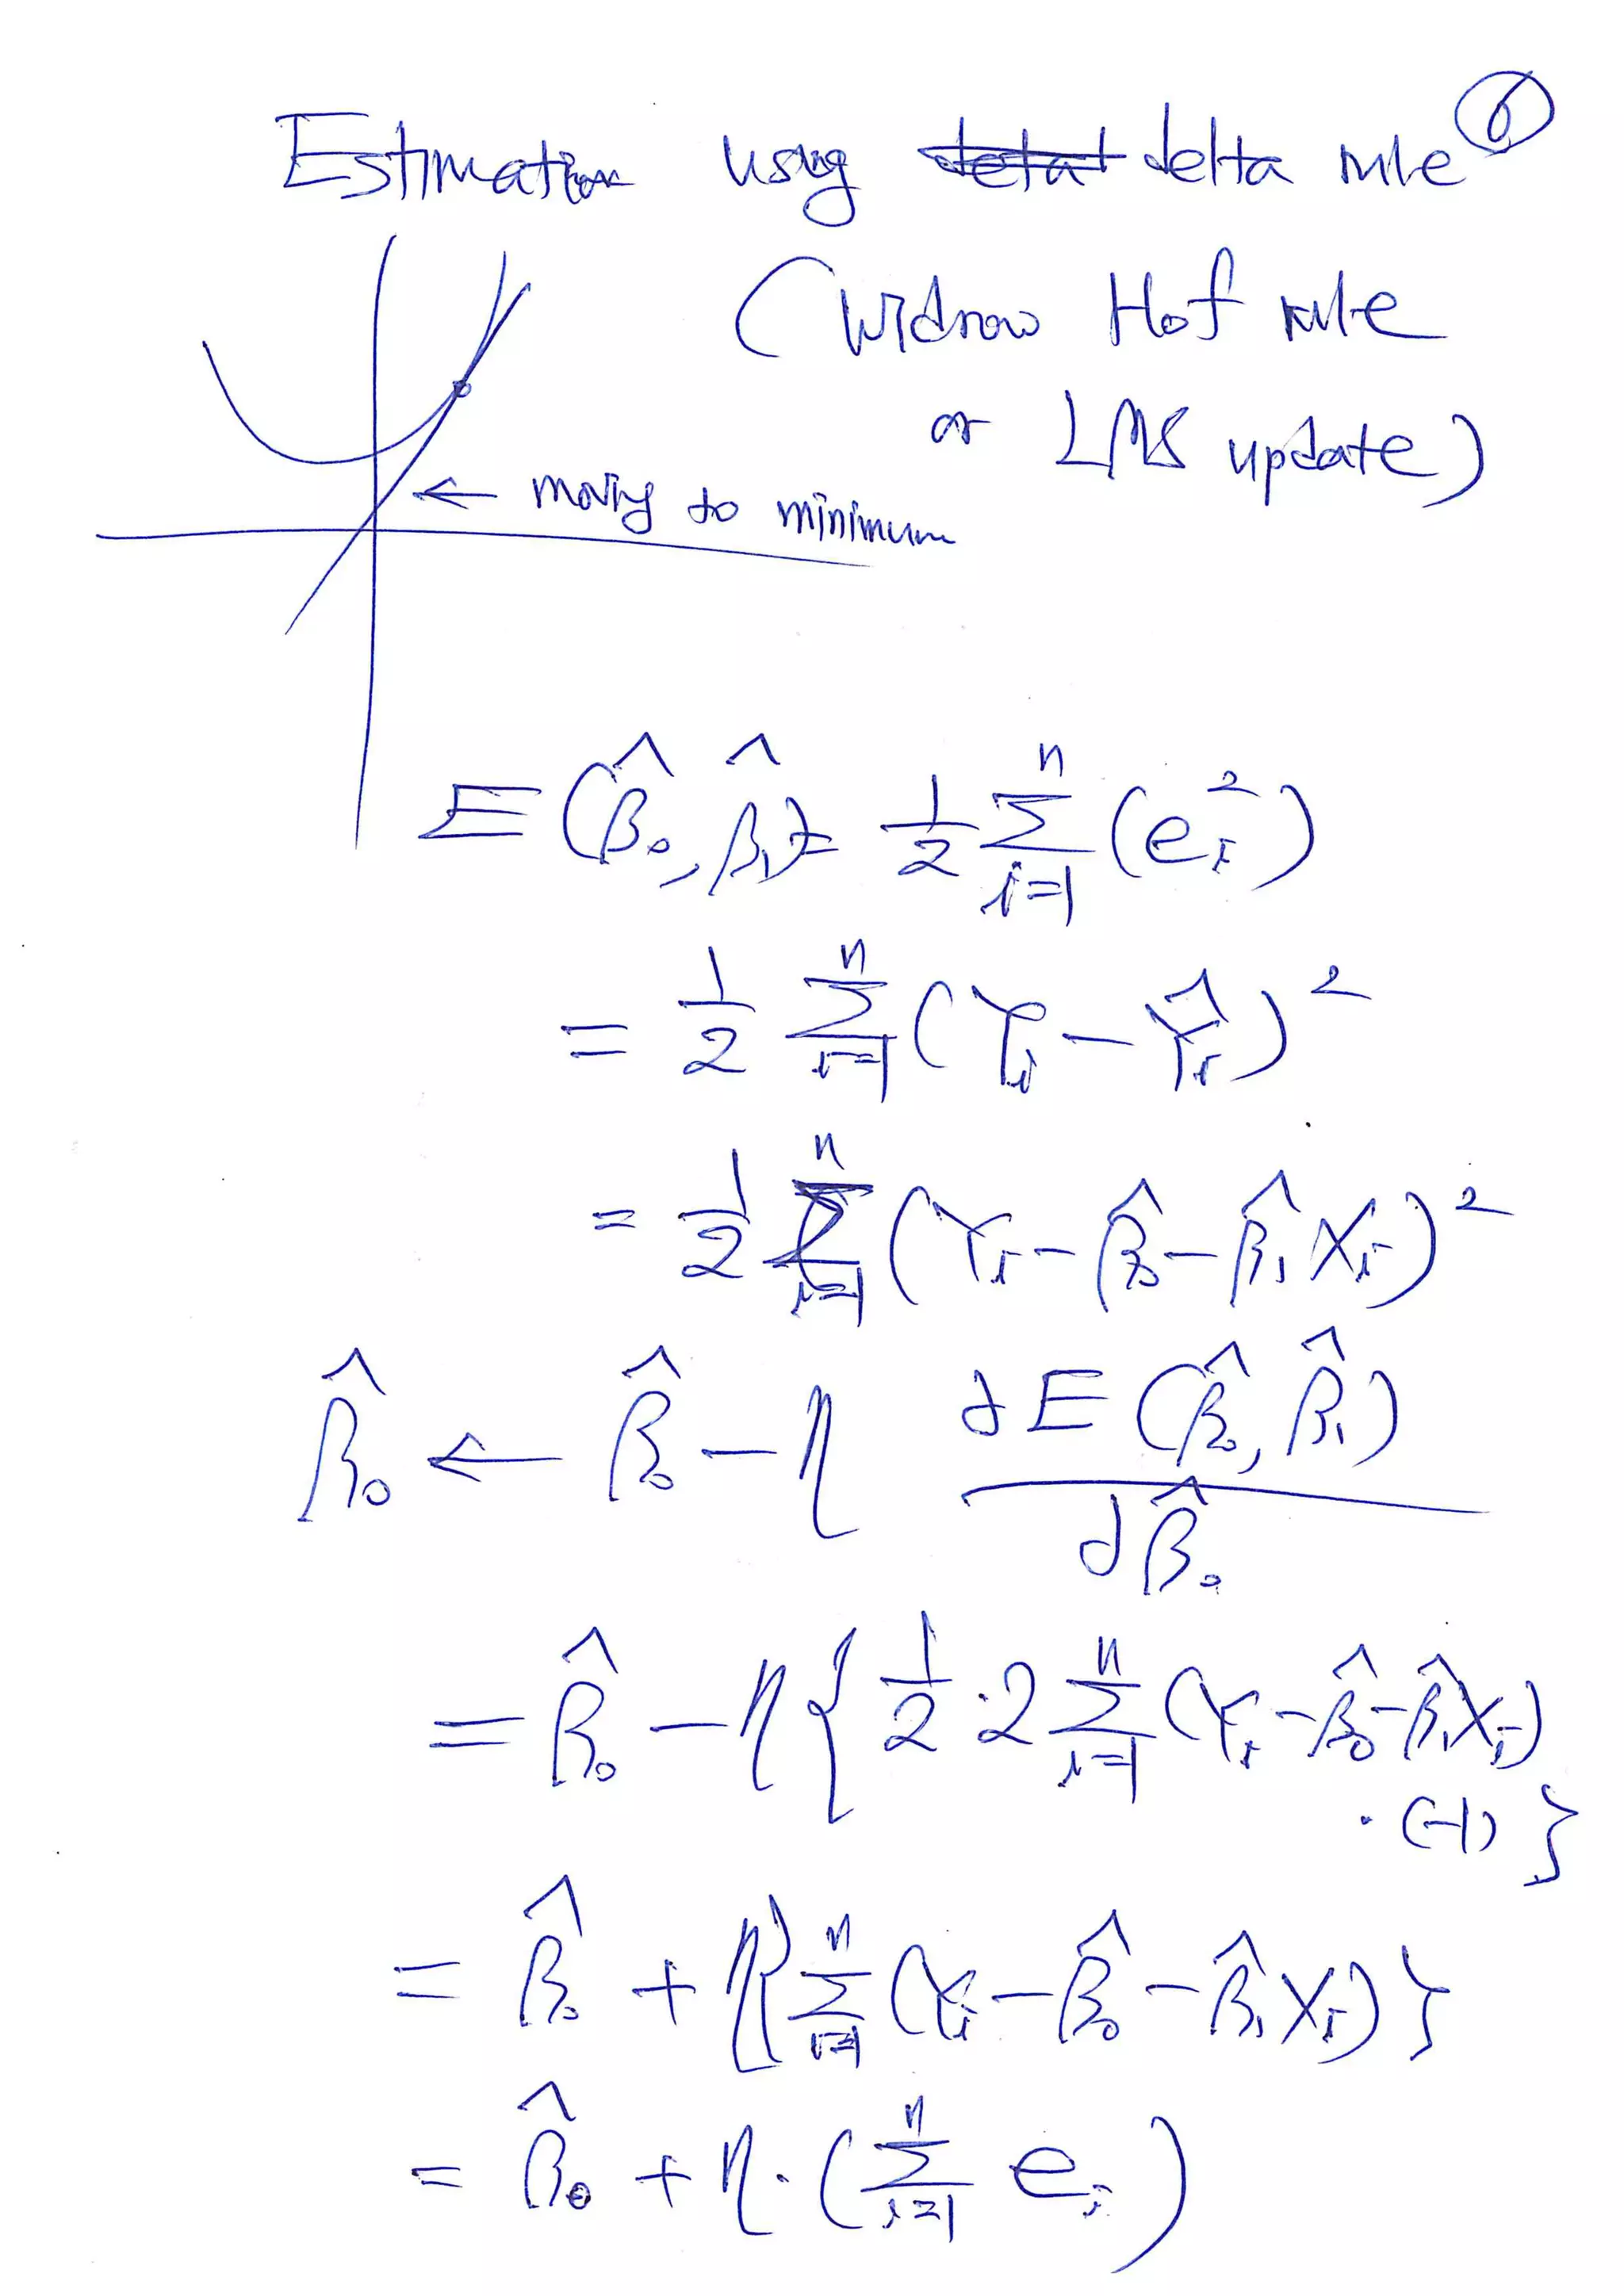 ⑥
Estimation using delta rule
(Widrow Hof rule
or LMS update)
← moving to minimum
E(β̂₀, β̂₁) = 1/2 Σᵢ₌₁ⁿ (eᵢ²)
= 1/2 Σᵢ₌₁ⁿ (Yᵢ − Ŷᵢ)²
= 1/2 Σᵢ₌₁ⁿ (Yᵢ − β̂₀ − β̂₁ Xᵢ)²
β̂₀ ← β̂₀ − η ∂E(β̂₀, β̂₁) / ∂β̂₀
= β̂₀ − η { 1/2 · 2 Σᵢ₌₁ⁿ (Yᵢ − β̂₀ − β̂₁Xᵢ)
· (−1) }
= β̂₀ + η { Σᵢ₌₁ⁿ (Yᵢ − β̂₀ − β̂₁Xᵢ) }
= β̂₀ + η · ( Σᵢ₌₁ⁿ eᵢ )